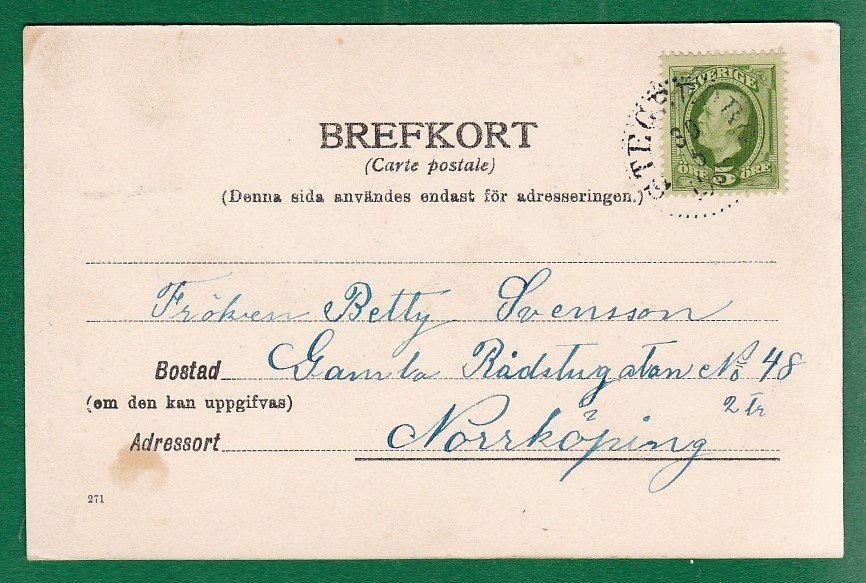 SVERIGE
ÖRE 5 ÖRE
BREFKORT
(Carte postale)
(Denna sida användes endast för adresseringen.)
Fröken Betty Svensson
Bostad Gamla Rådstugatan No 48
(om den kan uppgifvas) 2 tr
Adressort Norrköping
271